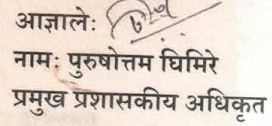 आज्ञालेः
नामः पुरुषोत्तम घिमिरे
प्रमुख प्रशासकीय अधिकृत